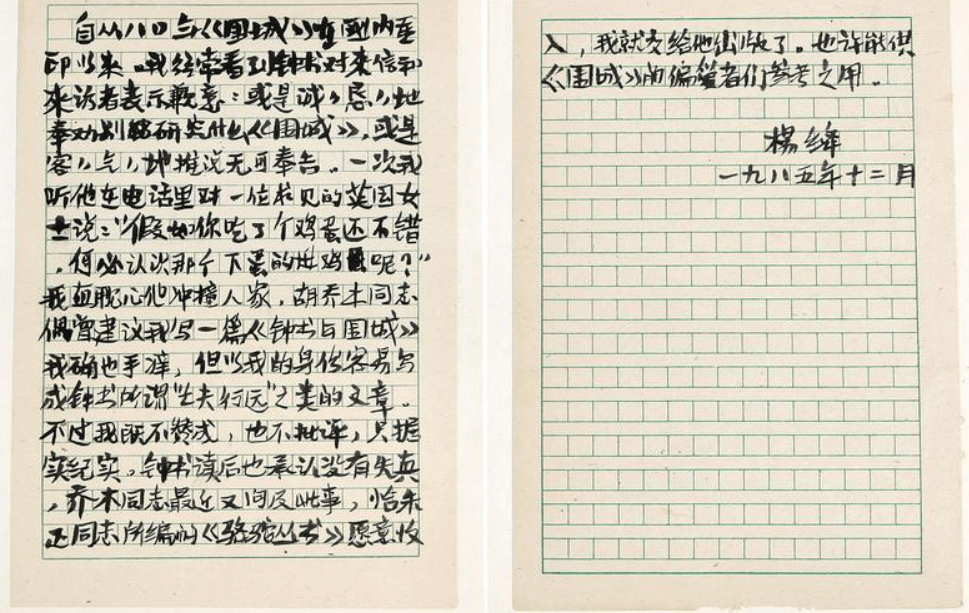 自从八〇年《围城》在国内重
印以来，我经常看到钟书对来信和
来访者表示歉意：或是诚〃恳〃地
奉劝别研究什么《围城》，或是
客〃气〃地推说无可奉告。一次我
听他在电话里对一位求见的英国女
士说：“假如你吃了个鸡蛋还不错
，何必认识那个下蛋的母鸡呢？”
我直耽心他冲撞人家，胡乔木同志
偶曾建议我写一篇《钟书与围城》
我确也手痒，但以我的身份容易写
成钟书所谓“亡夫行述”之类的文章。
不过我既不赞成，也不批评，只据
实纪实。钟书读后也承认没有失真
，乔木同志最近又问及此事，恰朱
正同志所编的《骆驼丛书》愿意收
入，我就交给他出版了。也许能供
《围城》的偏爱者们参考之用。
杨绛
一九八五年十二月